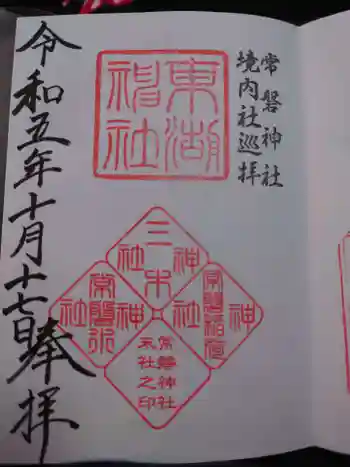 常磐神社
境内社巡拝
東湖
神社
三木
神社
常磐稲荷
神社
常磐水
神社
常磐神社
末社之印
令和五年十月十七日奉拝